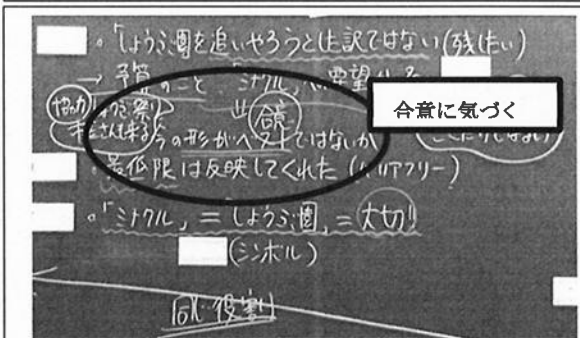 。「しょうぶ園を追いやろうとした訳ではない(残したい)
→ 予算のこと「ミナクル」に要望
協力
合意
合意に気づく
今の形がベストではないか
・最低限は反映してくれた(バリアフリー)
。「ミナクル」=しょうぶ園=大切!
(シンボル)
同じ役割